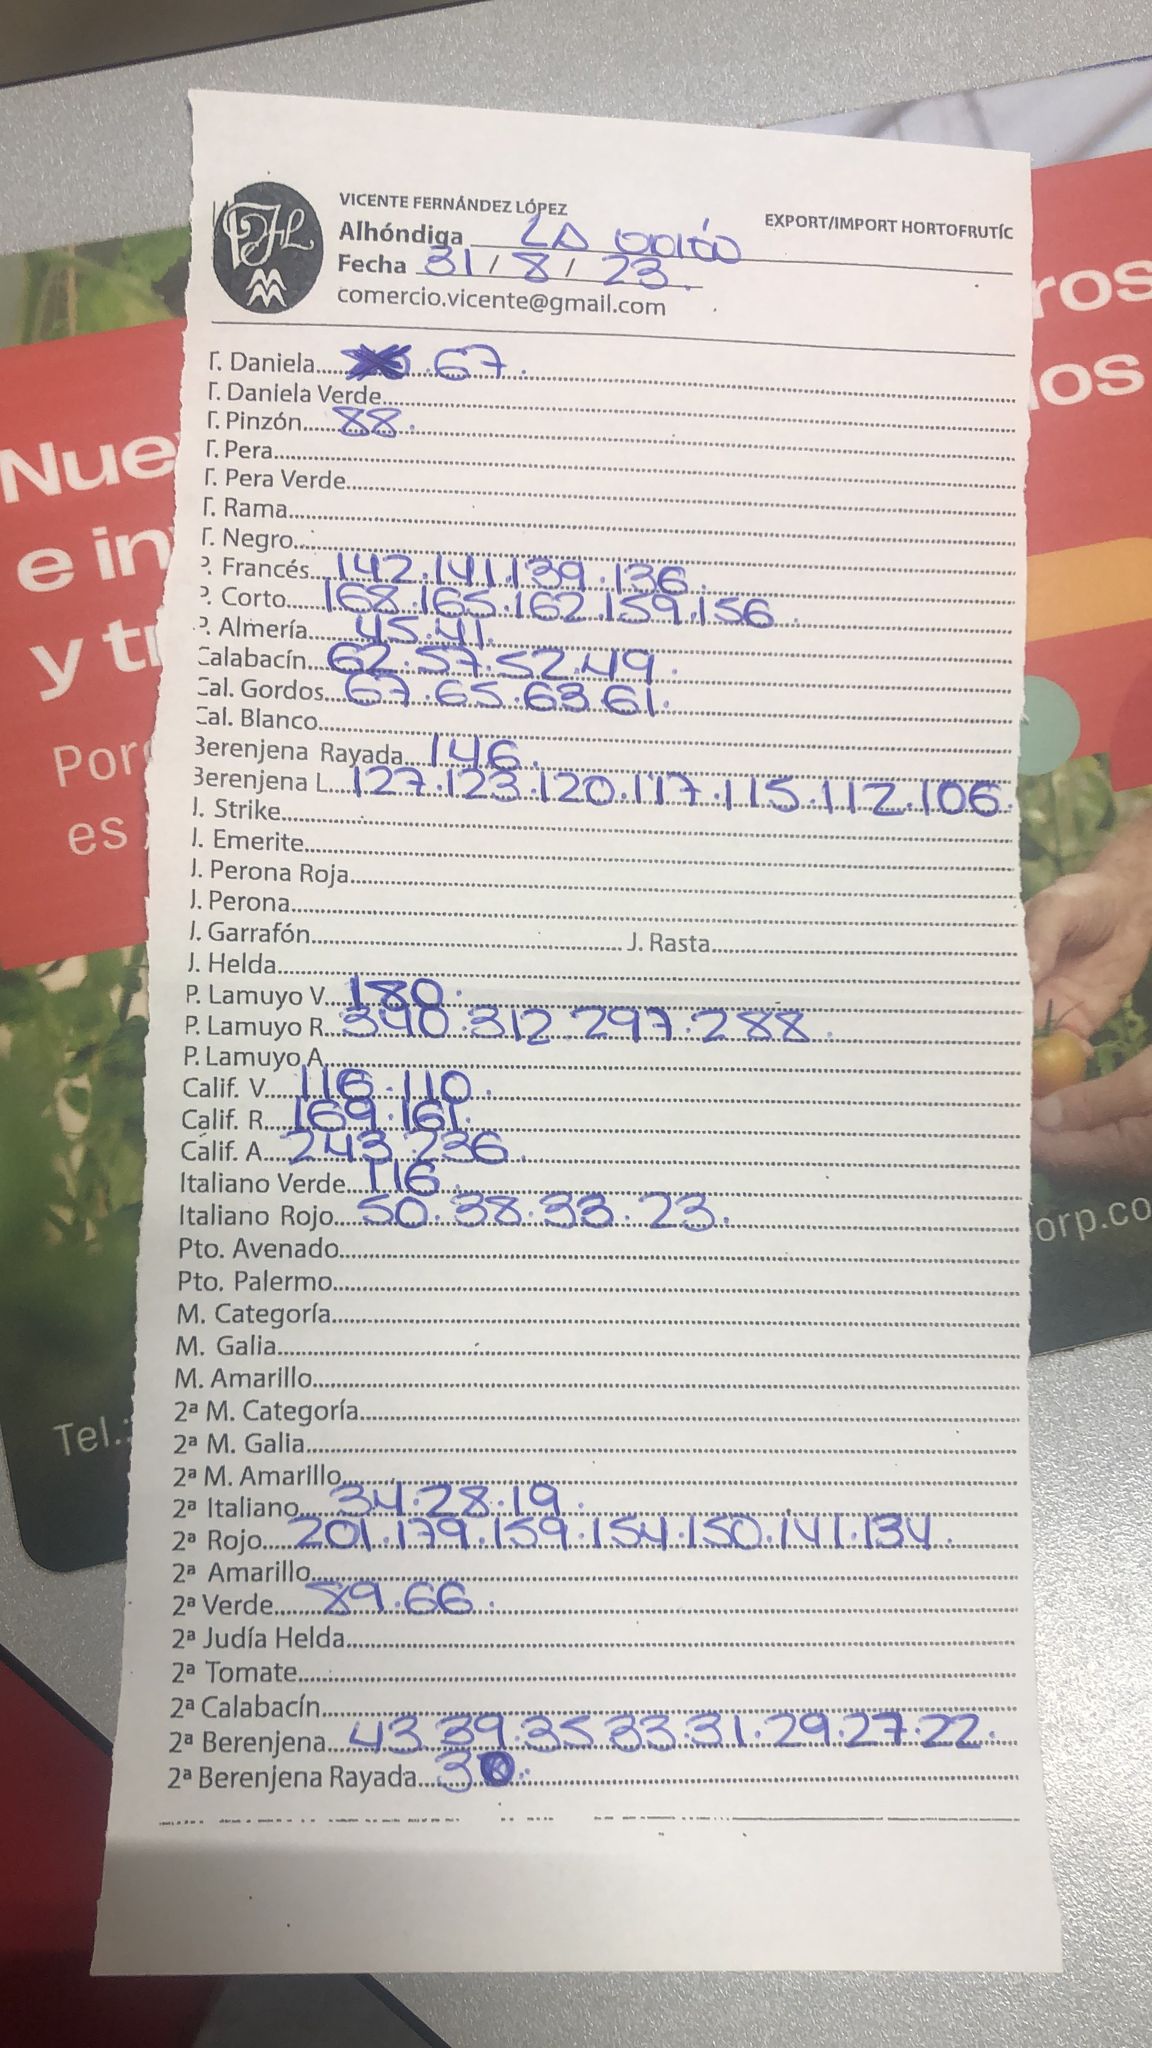 VICENTE FERNÁNDEZ LÓPEZ
EXPORT/IMPORT HORTOFRUTÍC
Alhóndiga LA UNIÓN
Fecha 31 / 8 / 23.
comercio.vicente@gmail.com
T. Daniela 67.
T. Daniela Verde
T. Pinzón 88.
T. Pera
T. Pera Verde
T. Rama
T. Negro
P. Francés 142.141.139.136.
P. Corto 168.165.162.159.156.
P. Almería 45.41.
Calabacín 62.57.52.49.
Cal. Gordos 67.65.63.61.
Cal. Blanco
Berenjena Rayada 146.
Berenjena L 127.123.120.117.115.112.106.
J. Strike
J. Emerite
J. Perona Roja
J. Perona
J. Garrafón J. Rasta
J. Helda
P. Lamuyo V 180.
P. Lamuyo R 340.312.297.288.
P. Lamuyo A
Calif. V 116.110.
Calif. R 169.161.
Calif. A 243.236.
Italiano Verde 116.
Italiano Rojo 50.38.33.23.
Pto. Avenado
Pto. Palermo
M. Categoría
M. Galia
M. Amarillo
2ª M. Categoría
2ª M. Galia
2ª M. Amarillo
2ª Italiano 34.28.19.
2ª Rojo 201.179.159.154.150.141.134.
2ª Amarillo
2ª Verde 89.66.
2ª Judía Helda
2ª Tomate
2ª Calabacín
2ª Berenjena 43.39.35.33.31.29.27.22.
2ª Berenjena Rayada 30.
Nue
e in
y tr
Por
es
Tel.:
ros
los
orp.co